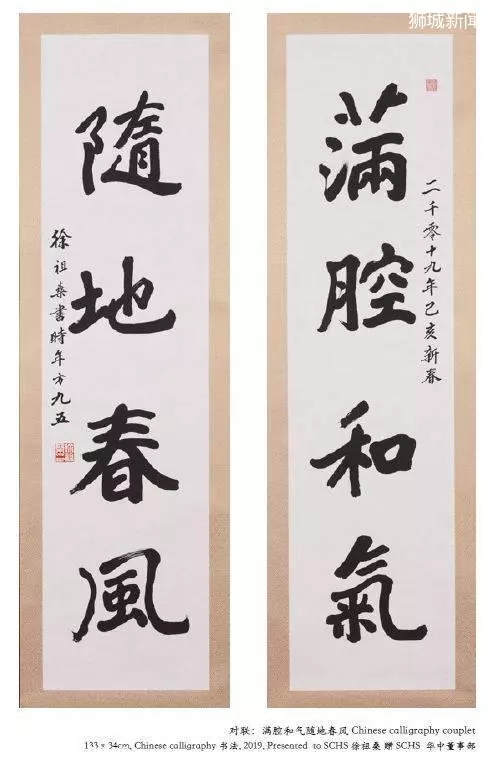 狮城新闻
滿腔和氣
二千零十九年己亥新春
隨地春風
徐祖燊書時年方九五
对联：满腔和气随地春风 Chinese calligraphy couplet
133 × 34cm, Chinese calligraphy 书法, 2019, Presented to SCHS 徐祖燊 赠 SCHS 华中董事部